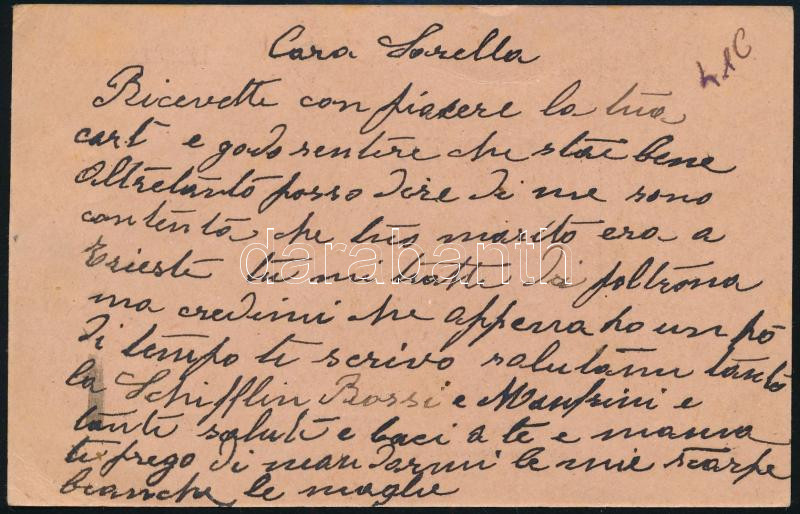 Cara Sorella
Ricevette con piacere la tua
cart e godo sentire che stai bene
Altretanto posso dire di me sono
contenta che tuo marito era a
Trieste tu mi tratti di poltrona
ma credimi che appena ho un pò
di tempo te scrivo salutami tanto
la Schifflin Rossi e Manfrini e
tante salute e baci a te e mama
te prego di mandarmi le mie scarpe
bianche le maglie
darabanth